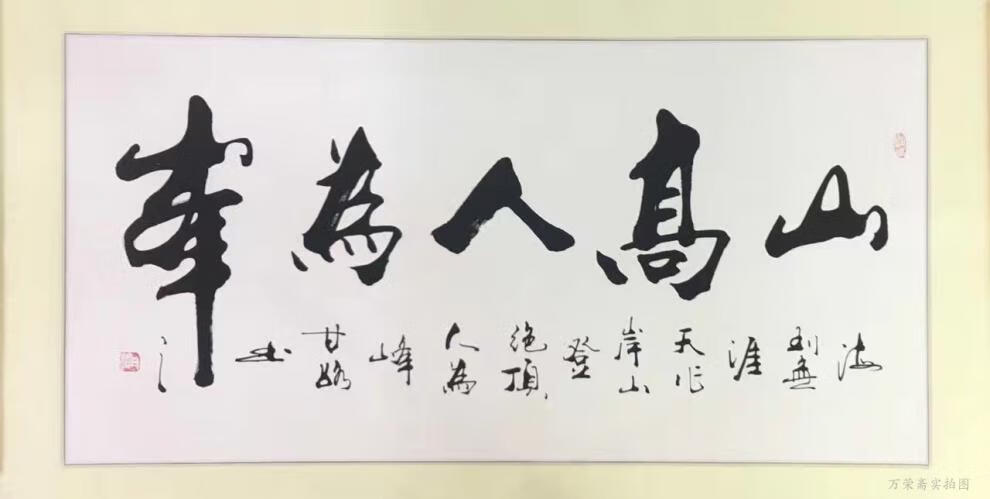 山高人為峯
海到無涯天作岸山登絕頂人為峰
书之
万荣斋实拍图